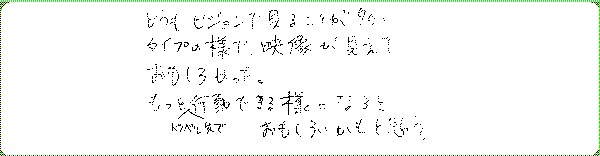 どうも ビジョンで見ることが多い
タイプの様で、映像が見えて
おもしろかった。
もっと行動できる様になると
トラベル先で
おもしろいかもと思う